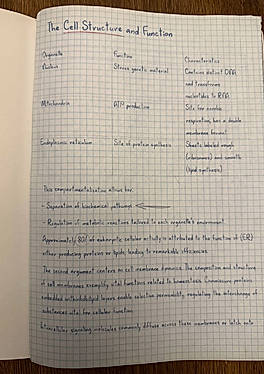 The Cell Structure and Function
Organelle Function Characteristics
Nucleus Stores genetic material Contains distinct DNA
and transforms
nucleotides to RNA
Mitochondria ATP production Site for aerobic
respiration, has a double
membrane
Endoplasmic reticulum Site of protein synthesis Sheets labeled rough
(ribosomes) and smooth
(lipid synthesis)
This compartmentalization allows for:
- Separation of biochemical pathways
- Regulation of metabolic reactions tailored to each organelle's environment
Approximately 80% of eukaryotic cellular activity is attributed to the function of (ER)
either producing proteins or lipids, leading to remarkable efficiencies.
The second argument centers on cell membrane dynamics. The composition and structure
of cell membranes exemplify vital functions related to homeostasis. proteins
embedded layers enable selective permeability, regulating the interchange of
substances vital for cellular function.
signaling molecules commonly diffuse across these membranes or latch onto